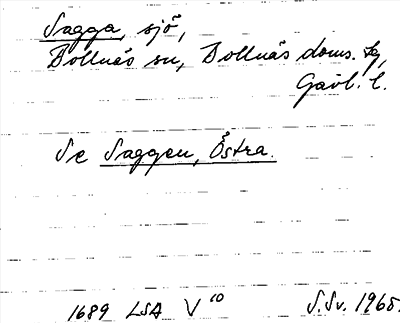 Sagga, sjö,
Bollnäs sn, Bollnäs doms. tg,
Gävl. l.
Se Saggen, Östra.
1689 LSA V 10 S.Sv. 1965.